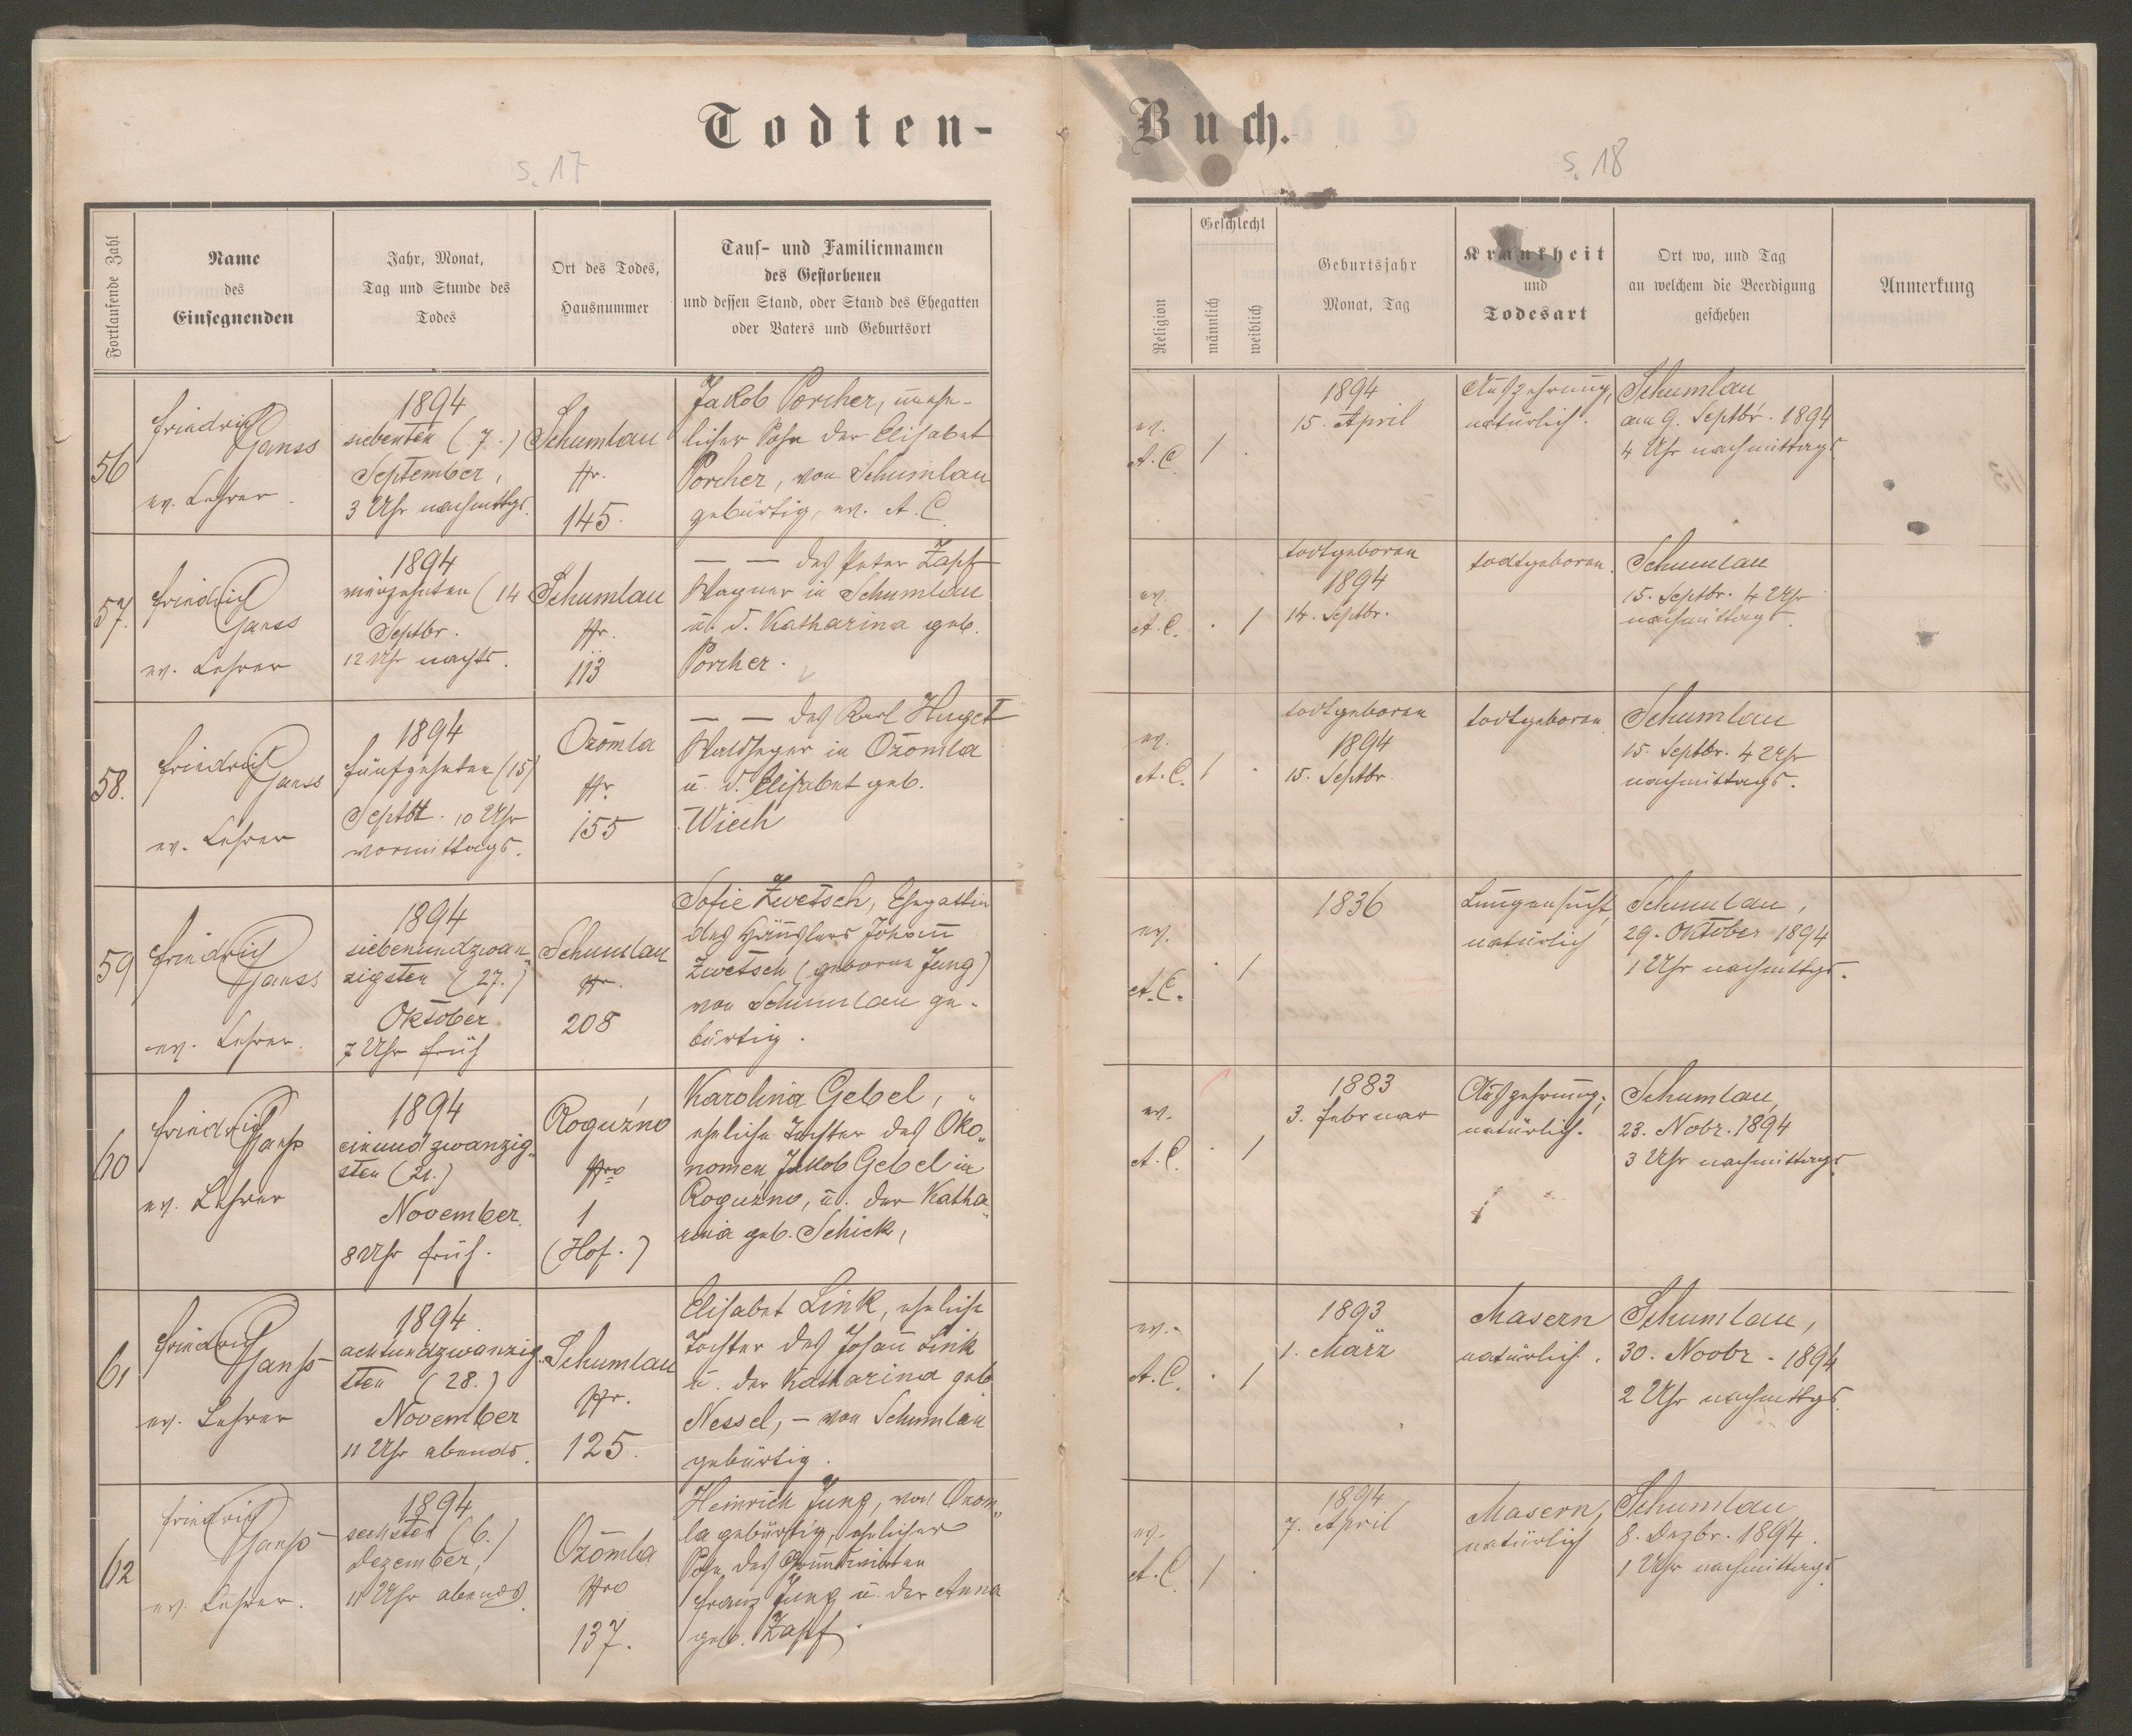 Todten-
Buch.
S. 17
S. 18
Fortlaufende Zahl
Name
des
Einsegnenden
Jahr, Monat,
Tag und Stunde des
Todes
Ort des Todes,
Hausnummer
Tauf- und Familiennamen
des Gestorbenen
und dessen Stand, oder Stand des Ehegatten
oder Vaters und Geburtsort
Religion
Geschlecht
männlich
weiblich
Geburtsjahr
Monat, Tag
Krankheit
und
Todesart
Ort wo, und Tag
an welchem die Beerdigung
geschehen
Anmerkung
56
Friedrich
Ganss
ev. Lehrer.
1894
siebenten (7.)
September,
3 Uhr nachmttgs.
Schumlau
Nr.
145.
Jakob Porcher, unehe-
licher Sohn der Elisabet
Porcher, von Schumlau
gebürtig, ev. A. C.
ev.
A. C.
1
.
1894
15. April
Auszehrung,
natürlich.
Schumlau
am 9. Septbr. 1894
4 Uhr nachmittags
57.
Friedrich
Ganss
ev. Lehrer
1894
vierzehnten (14
Septbr.
12 Uhr nachts.
Schumlau
Nr.
113
— — des Peter Zapf
Wagner in Schumlau
u. d. Katharina geb.
Porcher.
ev.
A. C.
.
1
todtgeboren
1894
14. Septbr.
todtgeboren.
Schumlau
15. Septbr. 4 Uhr
nachmittags.
58.
Friedrich
Ganss
ev. Lehrer
1894
fünfzehnten (15)
Septbr. 10 Uhr
vormittags.
Ożomla
Nr.
155
— — des Karl Huget
Waldheger in Ożomla
u. d. Elisabet geb.
Wiech
ev.
A. C.
1
.
todtgeboren
1894
15. Septbr.
todtgeboren
Schumlau
15. Septbr. 4 Uhr
nachmittags.
59
Friedrich
Ganss
ev. Lehrer.
1894
siebenundzwan„
zigsten (27.)
Oktober
7 Uhr früh
Schumlau
Nr.
208
Sofie Zwetsch, Ehegattin
des Häuslers Johann
Zwetsch (geborne Jung)
von Schumlau ge-
bürtig.
ev.
A. C.
.
1
1836
Lungensucht,
natürlich
Schumlau,
29. Oktober 1894
1 Uhr nachmttgs.
60
Friedrich
Ganß
ev. Lehrer
1894
einundzwanzig„
sten (21.)
November.
8 Uhr früh.
Roguźno
Nro
1
(Hof.)
Karolina Gebel,
eheliche Tochter des Öko„
nomen, Jakob Gebel in
Roguźno, u. der Katha„
rina geb. Schick,
ev.
A. C.
.
1
1883
3. Februar
Auszehrung;
natürlich.
Schumlau,
23. Nobr. 1894
3 Uhr nachmittags
61
Friedrich
Ganß
ev. Lehrer
1894
achtundzwanzig„
sten (28.)
November
11 Uhr abends.
Schumlau
Nr.
125.
Elisabet Link, eheliche
Tochter des Johann Link
u. der Katharina geb
Nessel, – von Schumlau
gebürtig.
ev.
A. C.
.
1
1893
1. März
Masern
natürlich.
Schumlau,
30. Novbr. 1894
2 Uhr nachmttgs.
62
Friedrich
Ganß
ev. Lehrer.
1894
sechsten (6.)
Dezember,
11 Uhr abends.
Ożomla
Nro
137.
Heinrich Jung, von Ożom„
la gebürtig, ehelicher
Sohn des Grundwirten
Franz Jung u. der Anna
geb. Zapf.
ev.
A. C.
1
.
1894
7. April
Masern,
natürlich
Schumlau
8. Dezbr. 1894.
1 Uhr nachmittags.